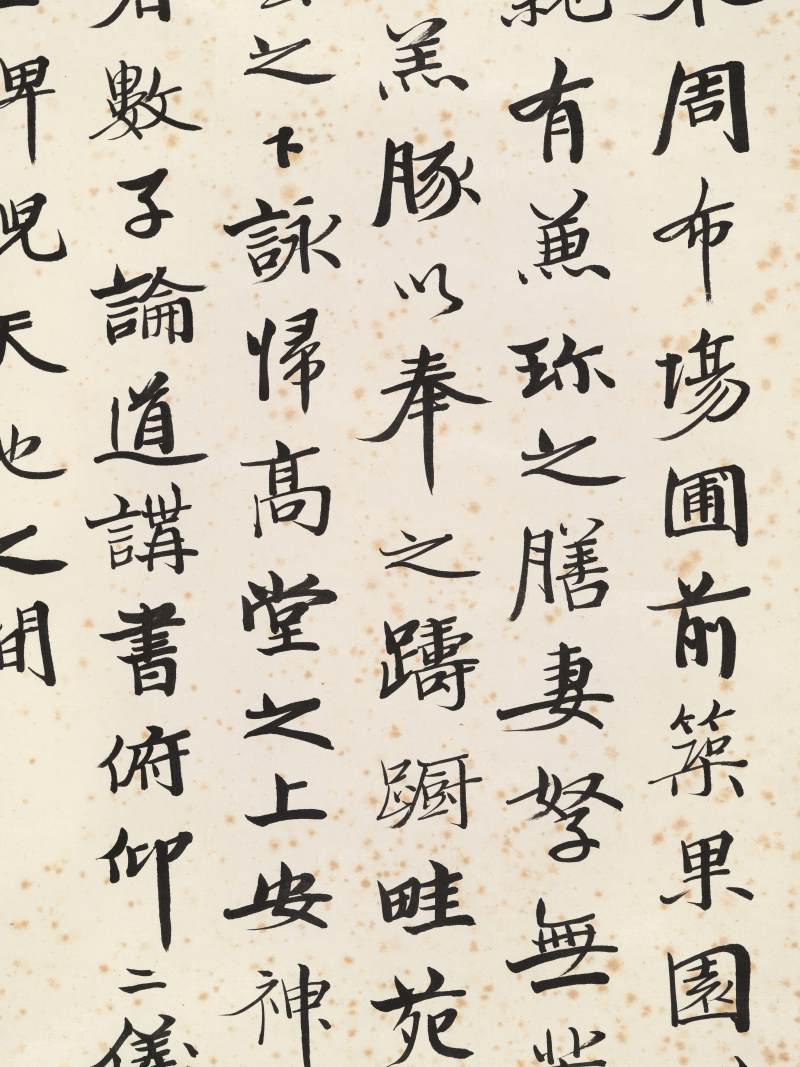 周布場圃前築果園
親有兼珍之膳妻孥無
羔豚以奉之躊躕畦苑
之下詠帰高堂之上安神
數子論道講書俯仰二儀
睥睨天地之間